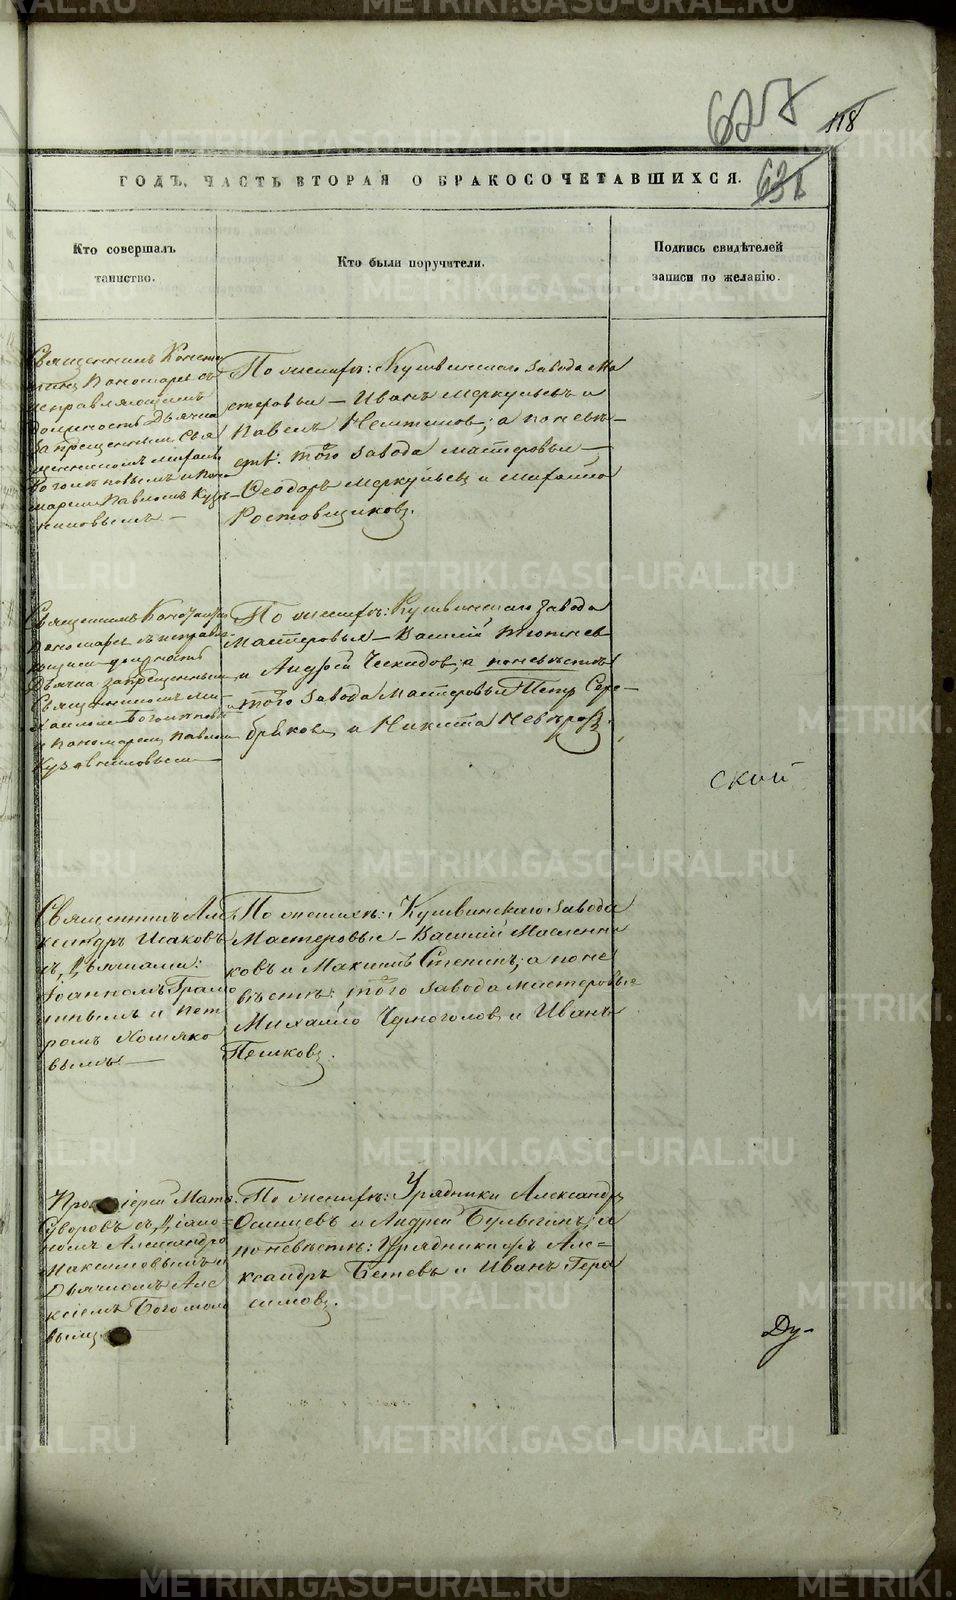 627
118
631
ГОДЪ, ЧАСТЬ ВТОРАЯ О БРАКОСОЧЕТАВШИХСЯ.
Кто совершалъ
таинство.
Кто были поручители.
Подпись свидѣтелей
записи по желанію.
Священникъ Конста
Пономаревъ съ
исправляющимъ
должность Дьячка
запрещеннымъ Свя
щенникомъ Михаил
Боголѣповымъ и Поно
маремъ Павломъ Кузов
никовымъ
По женихѣ: Кушвинскаго завода Ма
стеровые – Иванъ Меркурьевъ и
Павелъ а по невѣ
стѣ: того завода мастеровые
Ѳеодоръ Меркурьевъ и Михайло
Ростовщиковъ.
Священникъ
Пономаревъ съ исправля
ющимъ должность
Дьячка запрещеннымъ
Священникомъ Ми
хаиломъ Боголѣповы
и Пономаремъ Павломъ
Кузовниковымъ
По женихѣ: Кушвинскаго завода
Мастеровые – Василій
и Андрей Ческидовъ, а по невѣстѣ
того завода Мастеровые Петръ Сере–
бряковъ и Никита Невѣровъ.
ской
Священникъ Але
ксандръ Исаковъ
съ Дьячками:
Іоанномъ Грамо
тнымъ и Пет
ромъ Хомяко
вымъ
По женихѣ: Кушвинскаго завода
Мастеровые – Василій Масленни
ковъ и Максимъ Степинъ, а по не
вѣстѣ: того завода мастеровые
Михайло Черноголовъ и Иванъ
Пешковъ.
Протоіерей Матѳ
Суворовъ съ Діако=
номъ Александро
Максимовымъ и
Дьячкомъ Але
ксіемъ Богомоло
вымъ.
По женихѣ: Урядники Александръ
Осинцевъ и Андрей Булыгинъ, а
по невѣстѣ: Урядники Але=
ксандръ Бетевъ и Иванъ Гера
симовъ.
Ду-
METRIKI.GASO-URAL.RU